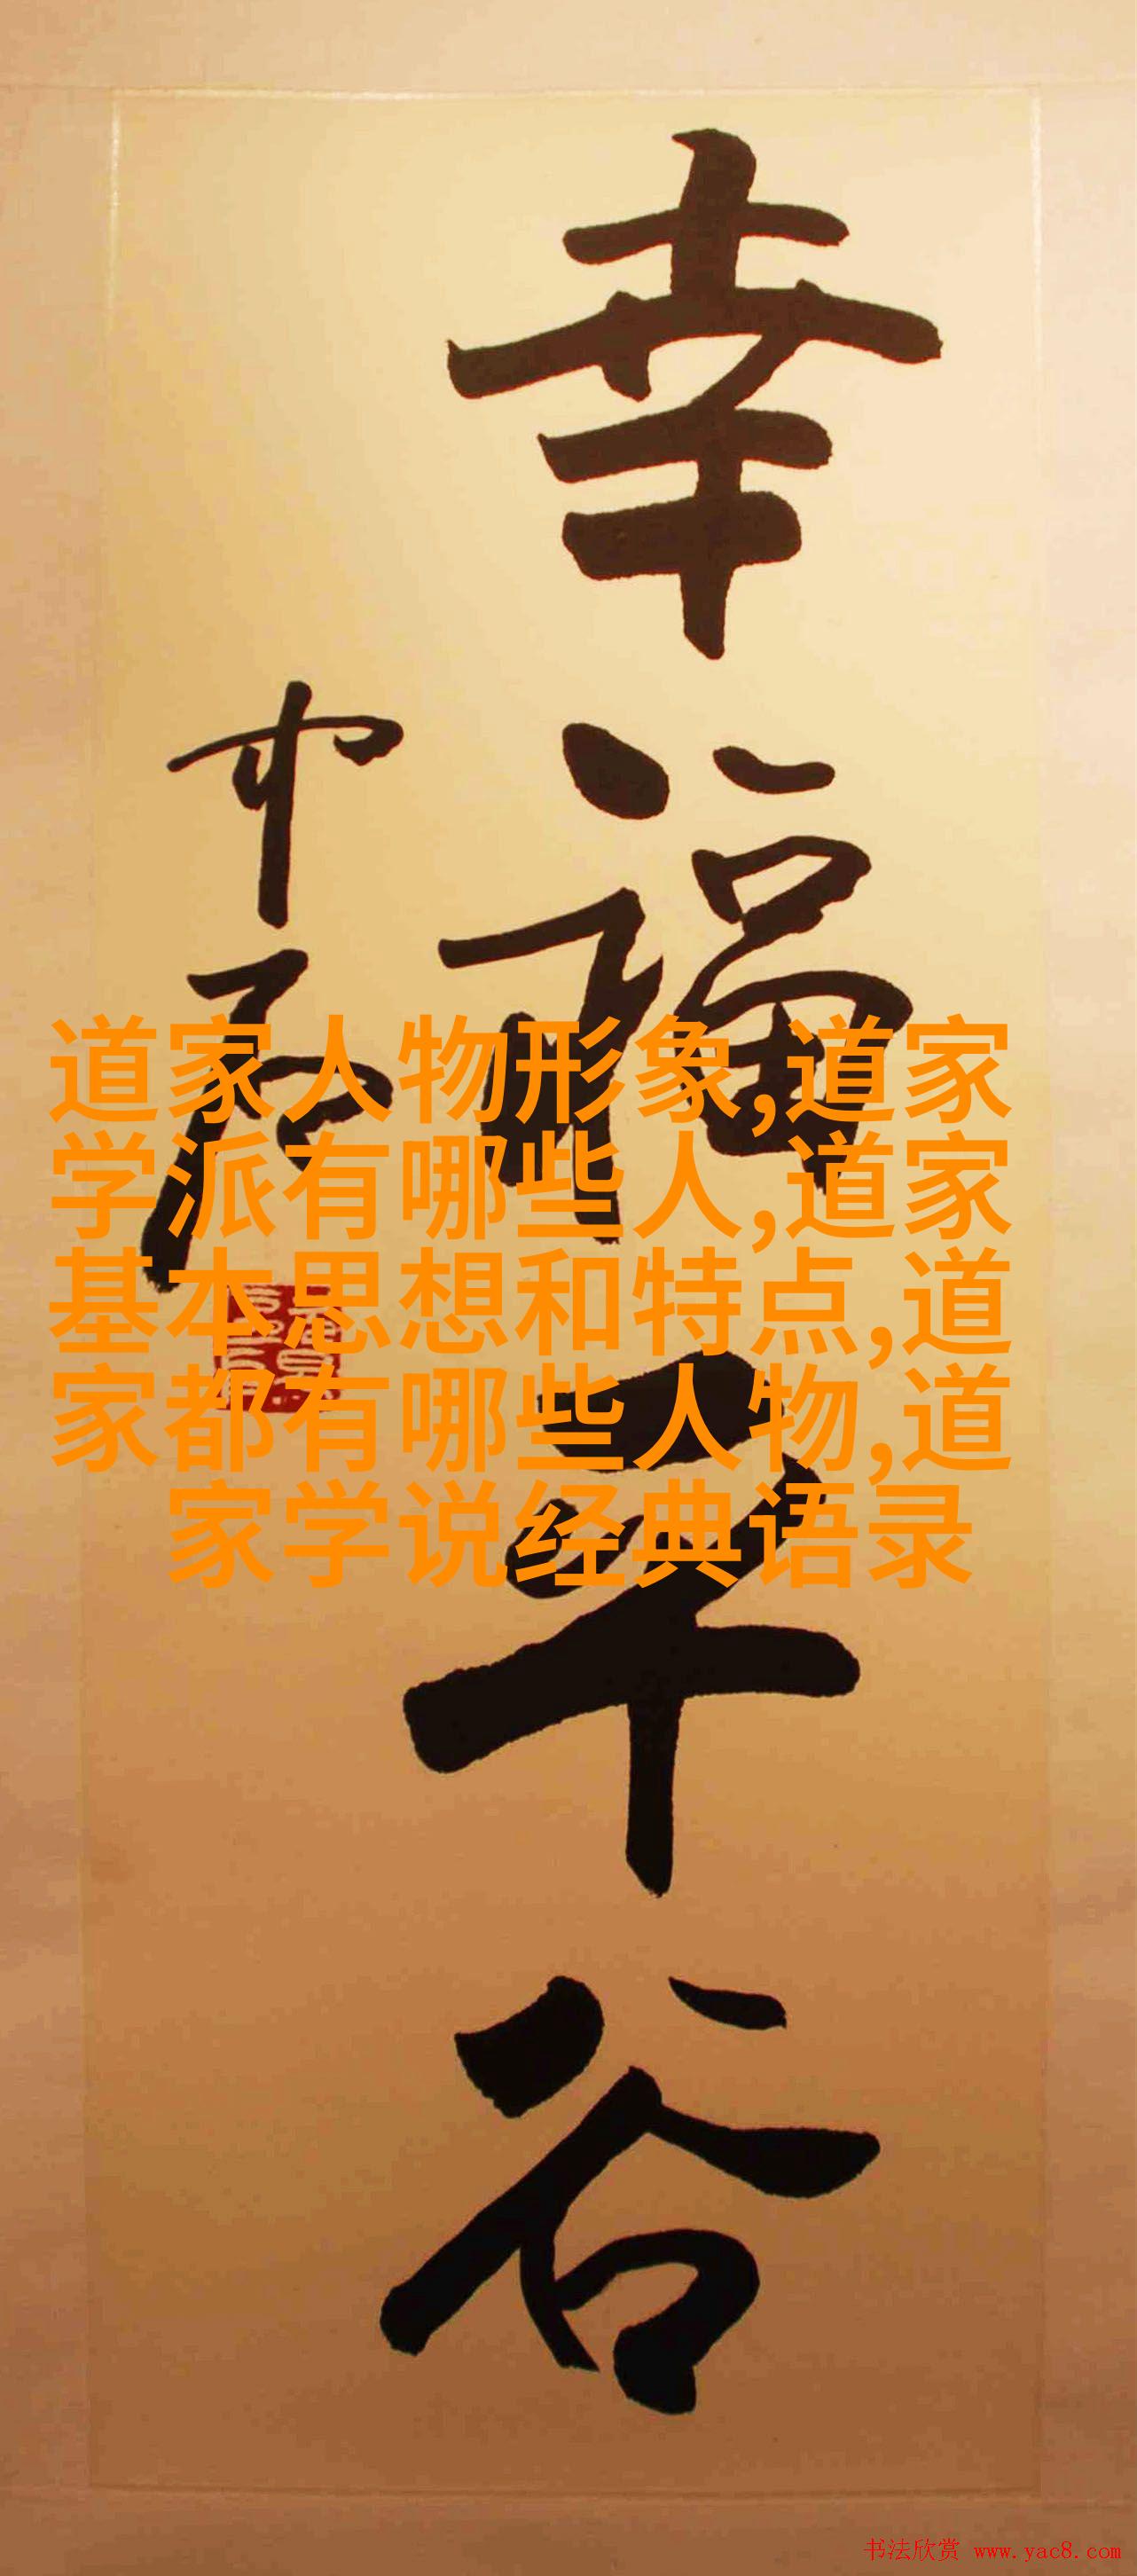 幸福平谷
道家人物形象,道家
学派有哪些人,道家
基本思想和特点,道
家都有哪些人物,道
家学说经典语录
书法欣赏 www.yac8.com